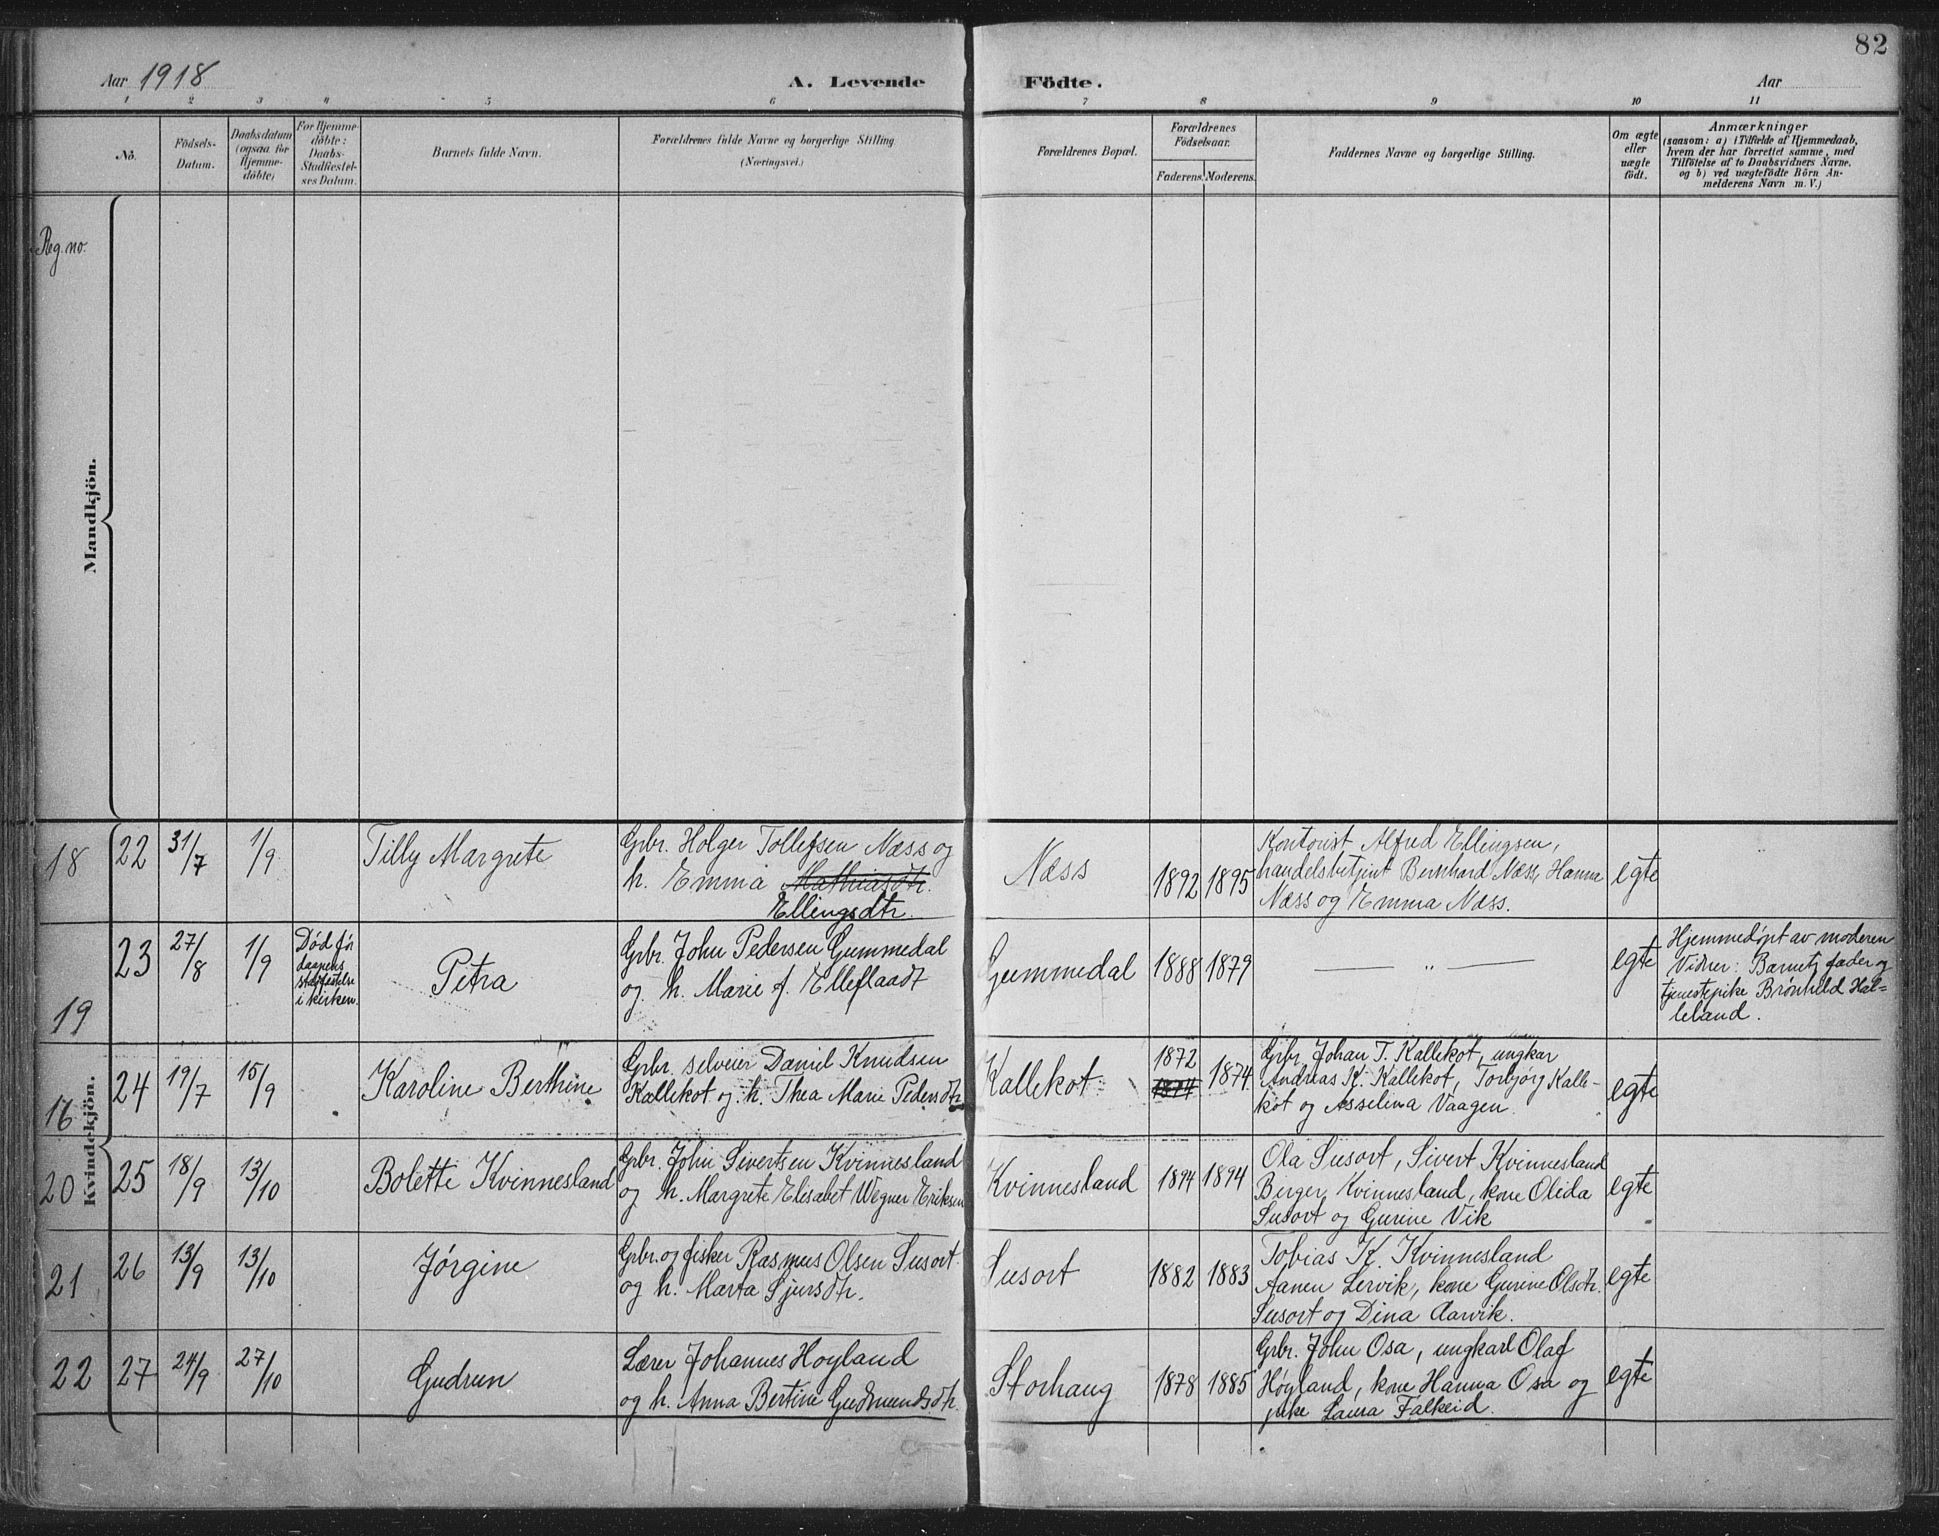 82
Aar 1918 A. Levende Födte. Aar
1 2 3 4 5 6 7 8 9 10 11
No.
Födsels-
Datum.
Daabsdatum
(ogsaa for
Hjemme-
döbte)
For Hjemme-
döbte:
Daabs-
Stadfæstel-
ses Datum.
Barnets fulde Navn.
Forældrenes fulde Navne og borgerlige Stilling
(Næringsvei.)
Forældrenes Bopæl.
Forældrenes
Födselsaar.
Faderens. Moderens.
Faddernes Navne og borgerlige Stilling.
Om ægte
eller
uægte
födt.
Anmærkninger
(saasom: a) i Tilfælde af Hjemmedaab,
hvem der har forrettet samme, med
Tilföielse af to Daabsvidners Navne,
og b) ved uægtefödte Börn An-
melderens Navn m. V.)
Reg. no.
Mandkjön.
Kvindekjön.
18 22 31/7 1/9
Tilly Margrete
Grbr. Holger Tollefsen Næss og
h. Emma Mathiasdtr.
Ellingsdtr.
Næss
1892 1895
Kontorist Alfred Ellingsen,
handelsbetjent Bernhard Næss, Hanna
Næss og Emma Næss.
egte
19 23 27/8 1/9
Død før
daapens
stadfestelse
i kirken.
Petra
Grbr. John Pedersen Gummedal
og h. Marie f. Elleflaadt
Gummedal
1888 1879
— „ —
egte
Hjemmedøpt av moderen
Vidner: Barnets fader og
tjenestepike Brønhild Hal-
leland.
16 24 19/7 15/9
Karoline Berthine
Grbr. selveier Daniel Knudsen
Kallekot og h. Thea Marie Pedersdtr.
Kallekot
1872
1874
1874
Grbr. Johan T. Kallekot, ungkar
Andreas K. Kallekot, Torbjørg Kalle-
kot og Asselina Vaagen.
egte
20 25 18/9 13/10
Bolette Kvinnesland
Grbr. John Sivertsen Kvinnesland
og h. Margrete Elisabet Wegner Eriksen
Kvinnesland
1894 1894
Ola Susort, Sivert Kvinnesland
Birger Kvinnesland, kone Olida
Susort og Gurine Vik
egte
21 26 13/9 13/10
Jørgine
Grbr. og fisker Rasmus Olsen Susort
og h. Marta Sjursdtr.
Susort
1882 1883
Tobias K. Kvinnesland
Aanen Lervik, kone Gurine Olsdtr.
Susort og Dina Aarvik.
egte
22 27 24/9 27/10
Gudrun
Lærer Johannes Hoyland
og h. Anna Bertine Gudmundsdtr.
Storhaug
1878 1885
Grbr. John Osa, ungkarl Olaf
Høyland, kone Hanna Osa og
pike Laura Falkeid.
egte